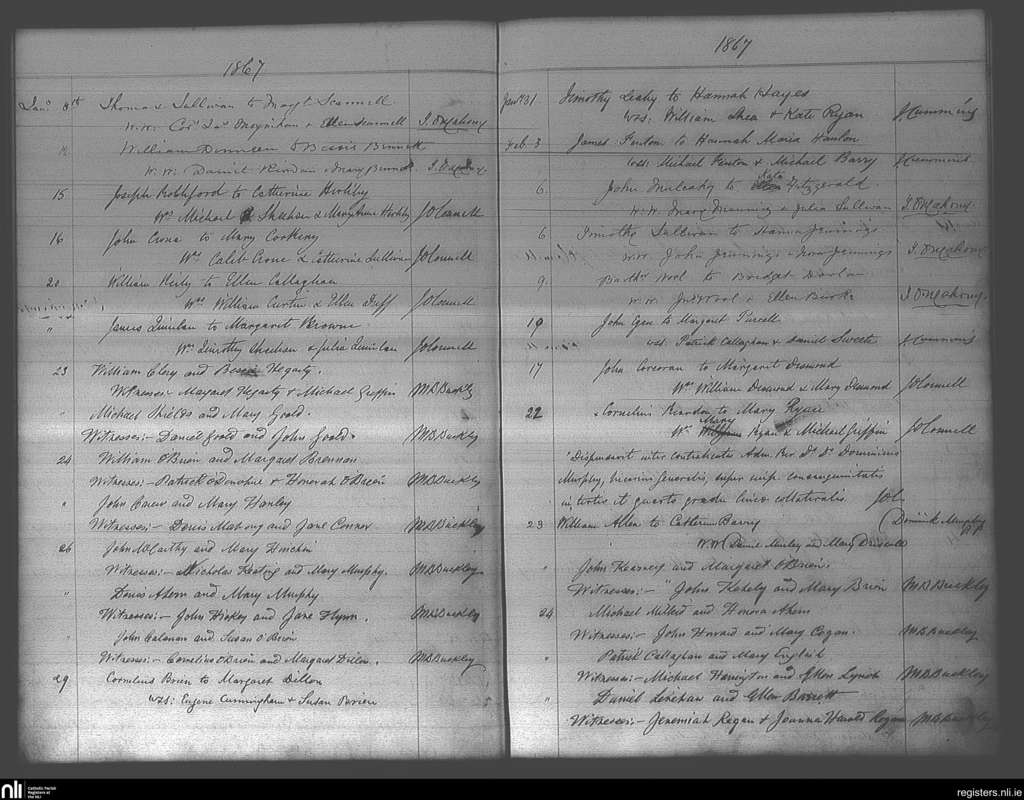 1867
Jan. 8th Thomas Sullivan to Margt Scannell
W.W. Corn. Jas. Moynihan & Ellen Scannell J. O'Mahony
William Donovan & Bessie Bennett
W.W. Daniel Riordan & Mary Bennett J. O'Mahony
15 Joseph Rochford to Catherine Herlihy
Ws. Michael Sheehan & Mary Anne Herlihy JOConnell
16 John Crone to Mary Corkery
Ws. Caleb Crone & Catherine Sullivan JOConnell
20 William Kiely to Ellen Callaghan
Ws. William Curtin & Ellen Duff JOConnell
" James Quinlan to Margaret Browne
Ws. Timothy Sheehan & Julia Quinlan JOConnell
23 William Clery and Hegarty.
Witnesses:- Margaret Hegarty & Michael Griffin MBBuckley
" Michael Shields and Mary Goold.
Witnesses:- Daniel Goold and John Goold. MBBuckley
24 William O'Brien and Margaret Brennan
Witnesses:- Patrick O'Donohue & Honorah O'Brien MBBuckley
" John and Mary Hanley
Witnesses:- Denis Mahony and Jane Connor MBBuckley
26 John McCarthy and Mary Hinchen
Witnesses:- Nicholas Keating and Mary Murphy. MBBuckley
" Denis Ahern and Mary Murphy
Witnesses:- John Hickey and Jane Flynn. MBBuckley
" John Calanan and Susan O'Brien
Witnesses:- Cornelius O'Brien and Margaret Dillon. MBBuckley
29 Cornelius Brien to Margaret Dillon
wts: Eugene Cunningham & Susan Brien
1867
Jany 31 Timothy Leahy to Hannah Hayes
wts: William Shea & Kate Ryan J. Cummins
Feb. 3 James Fenton to Hannah Maria Hanlon
wts: Michael Fenton & Michael Barry J. Cummins
6. John Mulcahy to Kate Fitzgerald.
W.W. Mary Manning & Julia Sullivan J. O'Mahony
6 Timothy Sullivan to Hanna Jennings
W.W. John Jennings & Jennings J. O'Mahony
9. Noel to Bridget Donlon
W.W. & Ellen Burke J. O'Mahony.
19 John Egan to Margaret Purcell
wts. Patrick Callaghan & Daniel Sweeth J. Cummins
17 John Corcoran to Margaret Desmond
Ws. William Desmond & Mary Desmond JOConnell
22 Cornelius Riordan to Mary Ryan
Ws. Mary Ryan & Michael Griffin JOConnell
Dispensavit inter contrahentes Adm. Rev. Ds. Ds. Dominicus
Murphy, Vicarius Generalis, super imp. consanguinitatis
in tertio et quarto gradu linea collateralis. JOC.
23 William Allen to Catherine Barry (Dominick Murphy
W.W. (Daniel and Mary Driscoll
" John Kearney and Margaret O'Brien.
Witnesses:- John Kahely and Mary Brien MBBuckley
24 Michael Millerd and Honora Ahern
Witnesses:- John Howard and Mary Cogan. MBBuckley
" Patrick Callaghan and Mary English
Witnesses:- Michael Harrington and Ellen Lynch MBBuckley
" Daniel Lenehan and Ellen Barrett
Witnesses:- Jeremiah Regan & Joanna Harold Regan MBBuckley
nli
Catholic Parish
Registers at
the NLI
registers.nli.ie